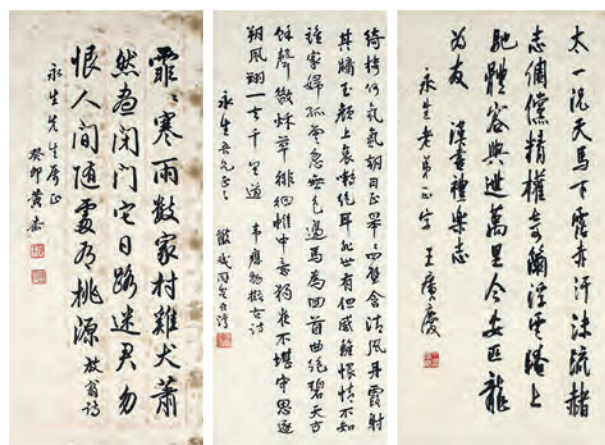 太一況天馬下霑赤汗沫流赭
志俶儻精權奇籋浮雲晻上
馳體容與迣萬里今安匹龍
為友 漢書禮樂志
永生老弟正字 王廣慶
綺樓何氛氳朝日正 四壁含清風丹霞射
其牖玉顏上哀囀絕耳非世有但感離恨情不知
誰家婦孤雲忽無色邊馬為回首曲絕碧天高
餘聲散秋草徘徊帷中意獨夜不堪守思逐
朔風翔一去千里道 韋應物擬古詩
永生吾兄正之
霏々寒雨數家村雞犬蕭
然晝閉門它日路迷君勿
恨人間隨處有桃源 放翁詩
永生先生屬正
癸卯黃杰